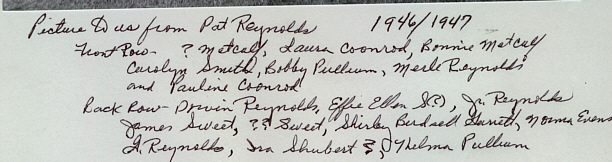 Picture to us from Pat Reynolds 1946/1947
Front Row - ? Metcalf, Laura Coonrod, Bonnie Metcalf
Carolyn Smith, Bobby Pullium, Merle Reynolds
and Pauline Coonrod
Back Row - Darwin Reynolds, Effie Ellen S(?), Jr. Reynolds
James Sweet, ?? Sweet, Shirley Birdsell Garrett, Norma Evens
Reynolds, Ira Shubert ?, Thelma Pullium